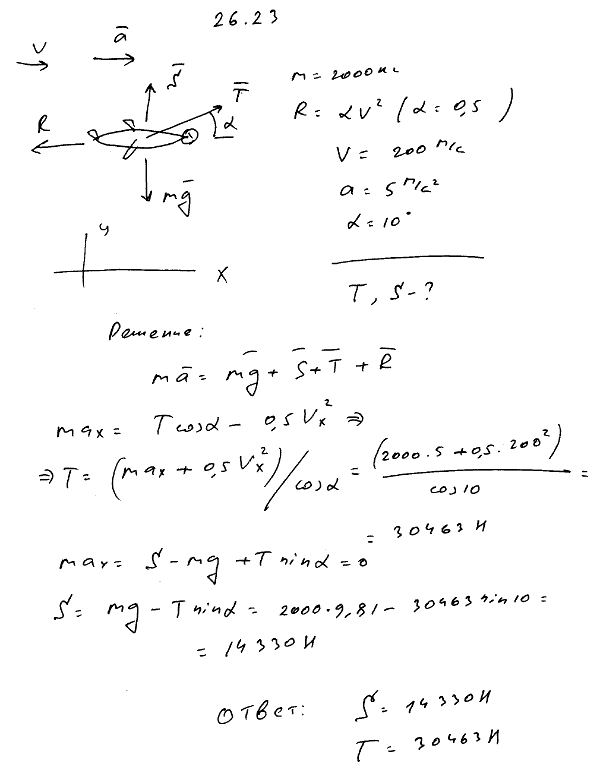 26.23
V
a̅
S̅
T̅
R
α
mg̅
y
x
m = 2000 кг
R = αV² (α = 0,5)
V = 200 м/с
a = 5 м/с²
α = 10°
T, S - ?
Решение:
ma̅ = mg̅ + S̅ + T̅ + R̅
max = T cosα - 0,5 Vx² ⇒
⇒ T = (max + 0,5 Vx²) / cosα = (2000·5 + 0,5·200²) / cos10 =
= 30463 Н
may = S - mg + T sinα = 0
S = mg - T sinα = 2000·9,81 - 30463 sin10 =
= 14330 Н
Ответ: S = 14330 Н
T = 30463 Н